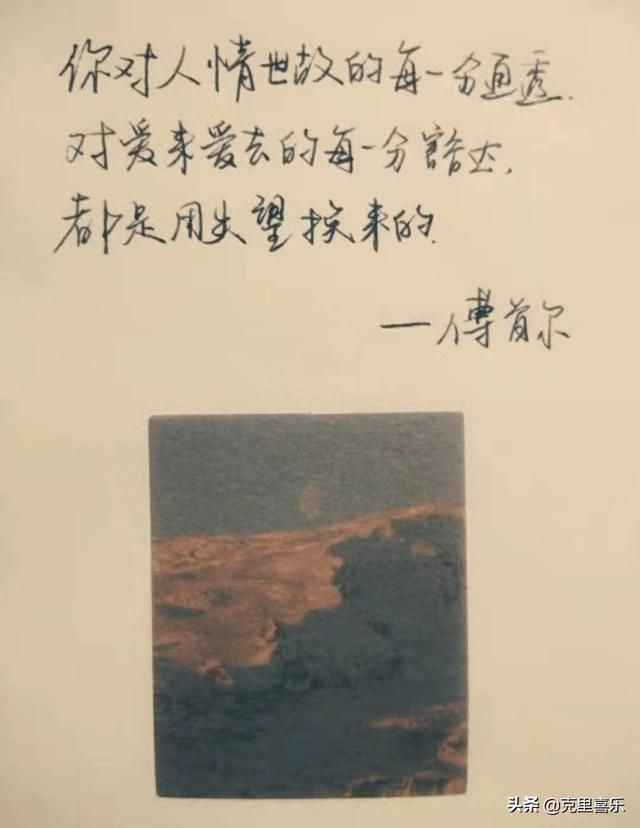 你对人情世故的每一分通透.
对爱来爱去的每一分豁达,
都是用失望换来的.
—傅首尔
头条 @克里喜乐